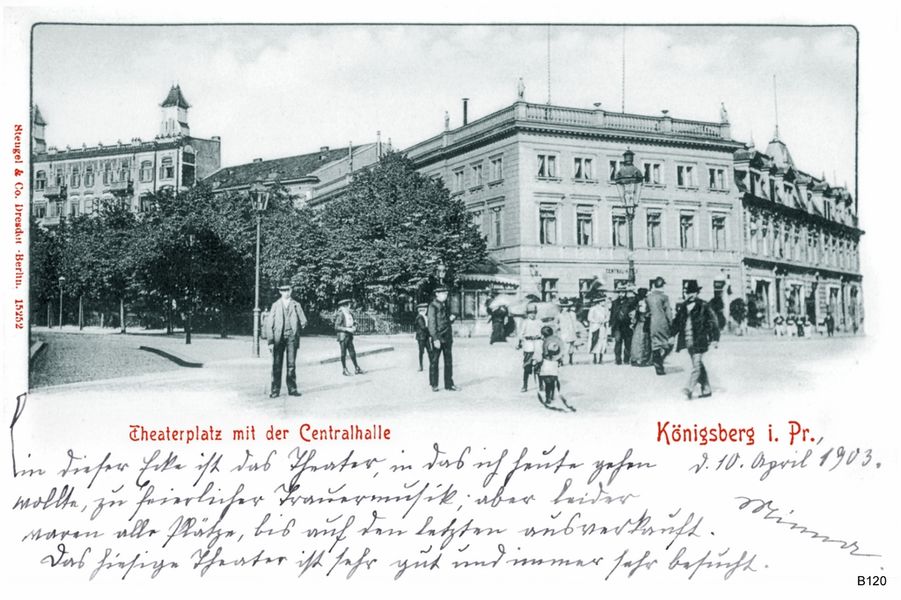 Stengel & Co. Dresden-Berlin. 15252
CENTRAL-H
Theaterplatz mit der Centralhalle
Königsberg i. Pr.,
d. 10. April 1903.
in dieser Ecke ist das Theater, in das ich heute gehen
wollte, zu feierlicher Trauermusik; aber leider
waren alle Plätze, bis auf den letzten ausverkauft.
Minna
Das hiesige Theater ist sehr gut und immer sehr besucht.
B120